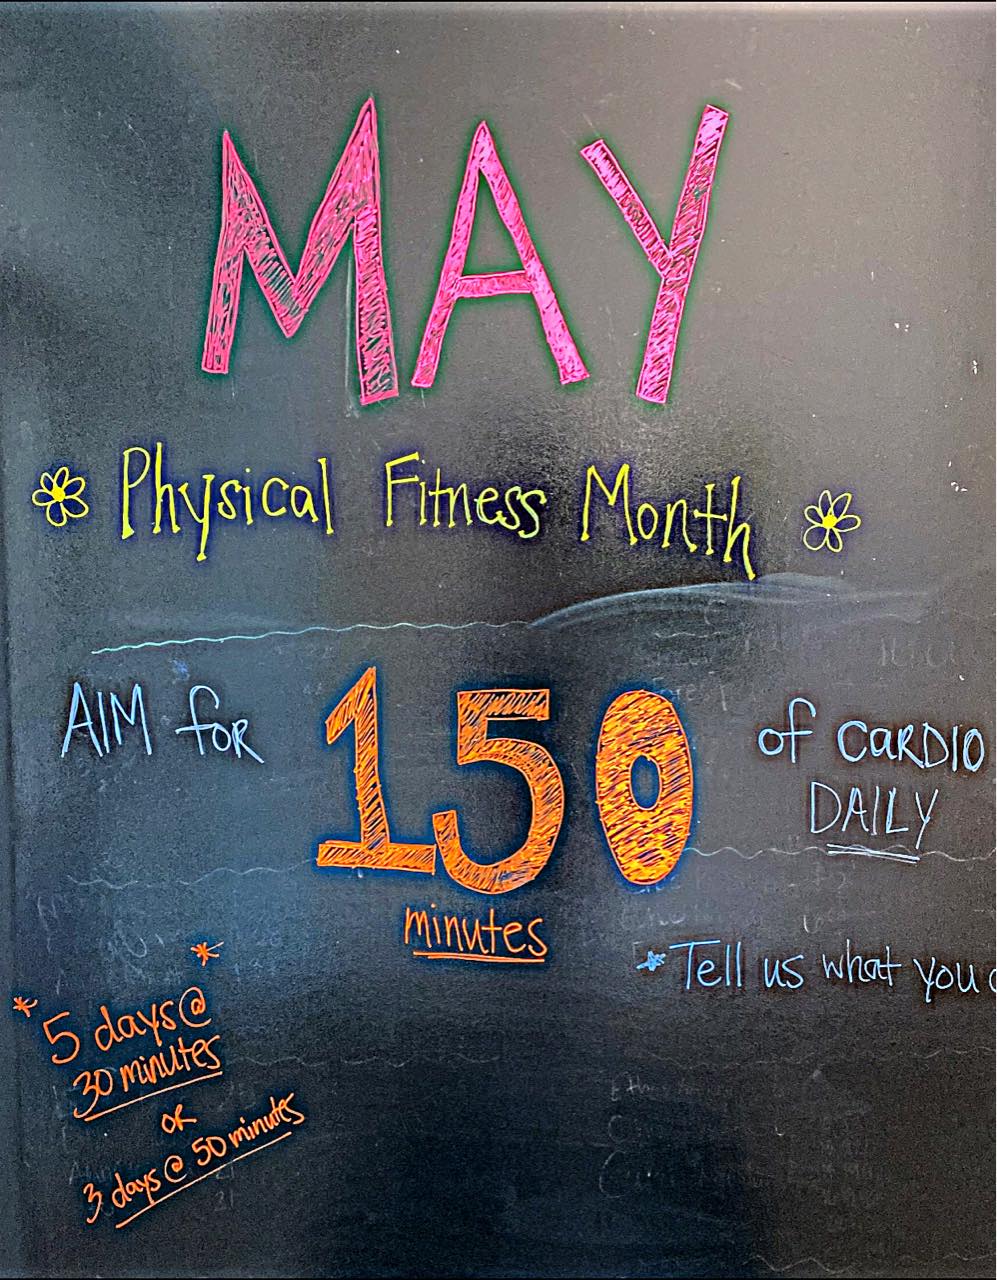 MAY
Physical Fitness Month
AIM for 150 of CARDIO
DAILY
minutes
*Tell us what you
* 5 days @ *
30 minutes
OR
3 days @ 50 minutes